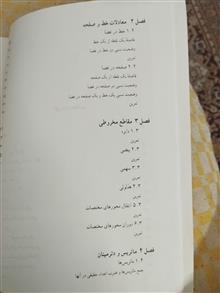 فصل ۲ معادلات خط و صفحه
۱.۲ خط در فضا
فاصلهٔ یک نقطه از یک خط
وضعیت نسبی دو خط در فضا
تمرین
۲.۲ صفحه در فضا
فاصلهٔ یک نقطه از یک صفحه
وضعیت نسبی دو صفحه در فضا
وضعیت نسبی یک خط و یک صفحه در فضا
تمرین
فصل ۳ مقاطع مخروطی
۱.۳ دایره
تمرین
۲.۳ بیضی
تمرین
۳.۳ سهمی
تمرین
۴.۳ هذلولی
۵.۳ انتقال محورهای مختصات
تمرین
۶.۳ دوران محورهای مختصات
تمرین
فصل ۴ ماتریس و دترمینان
۱.۴ ماتریس‌ها
جمع ماتریس‌ها و ضرب اعداد حقیقی در آنها